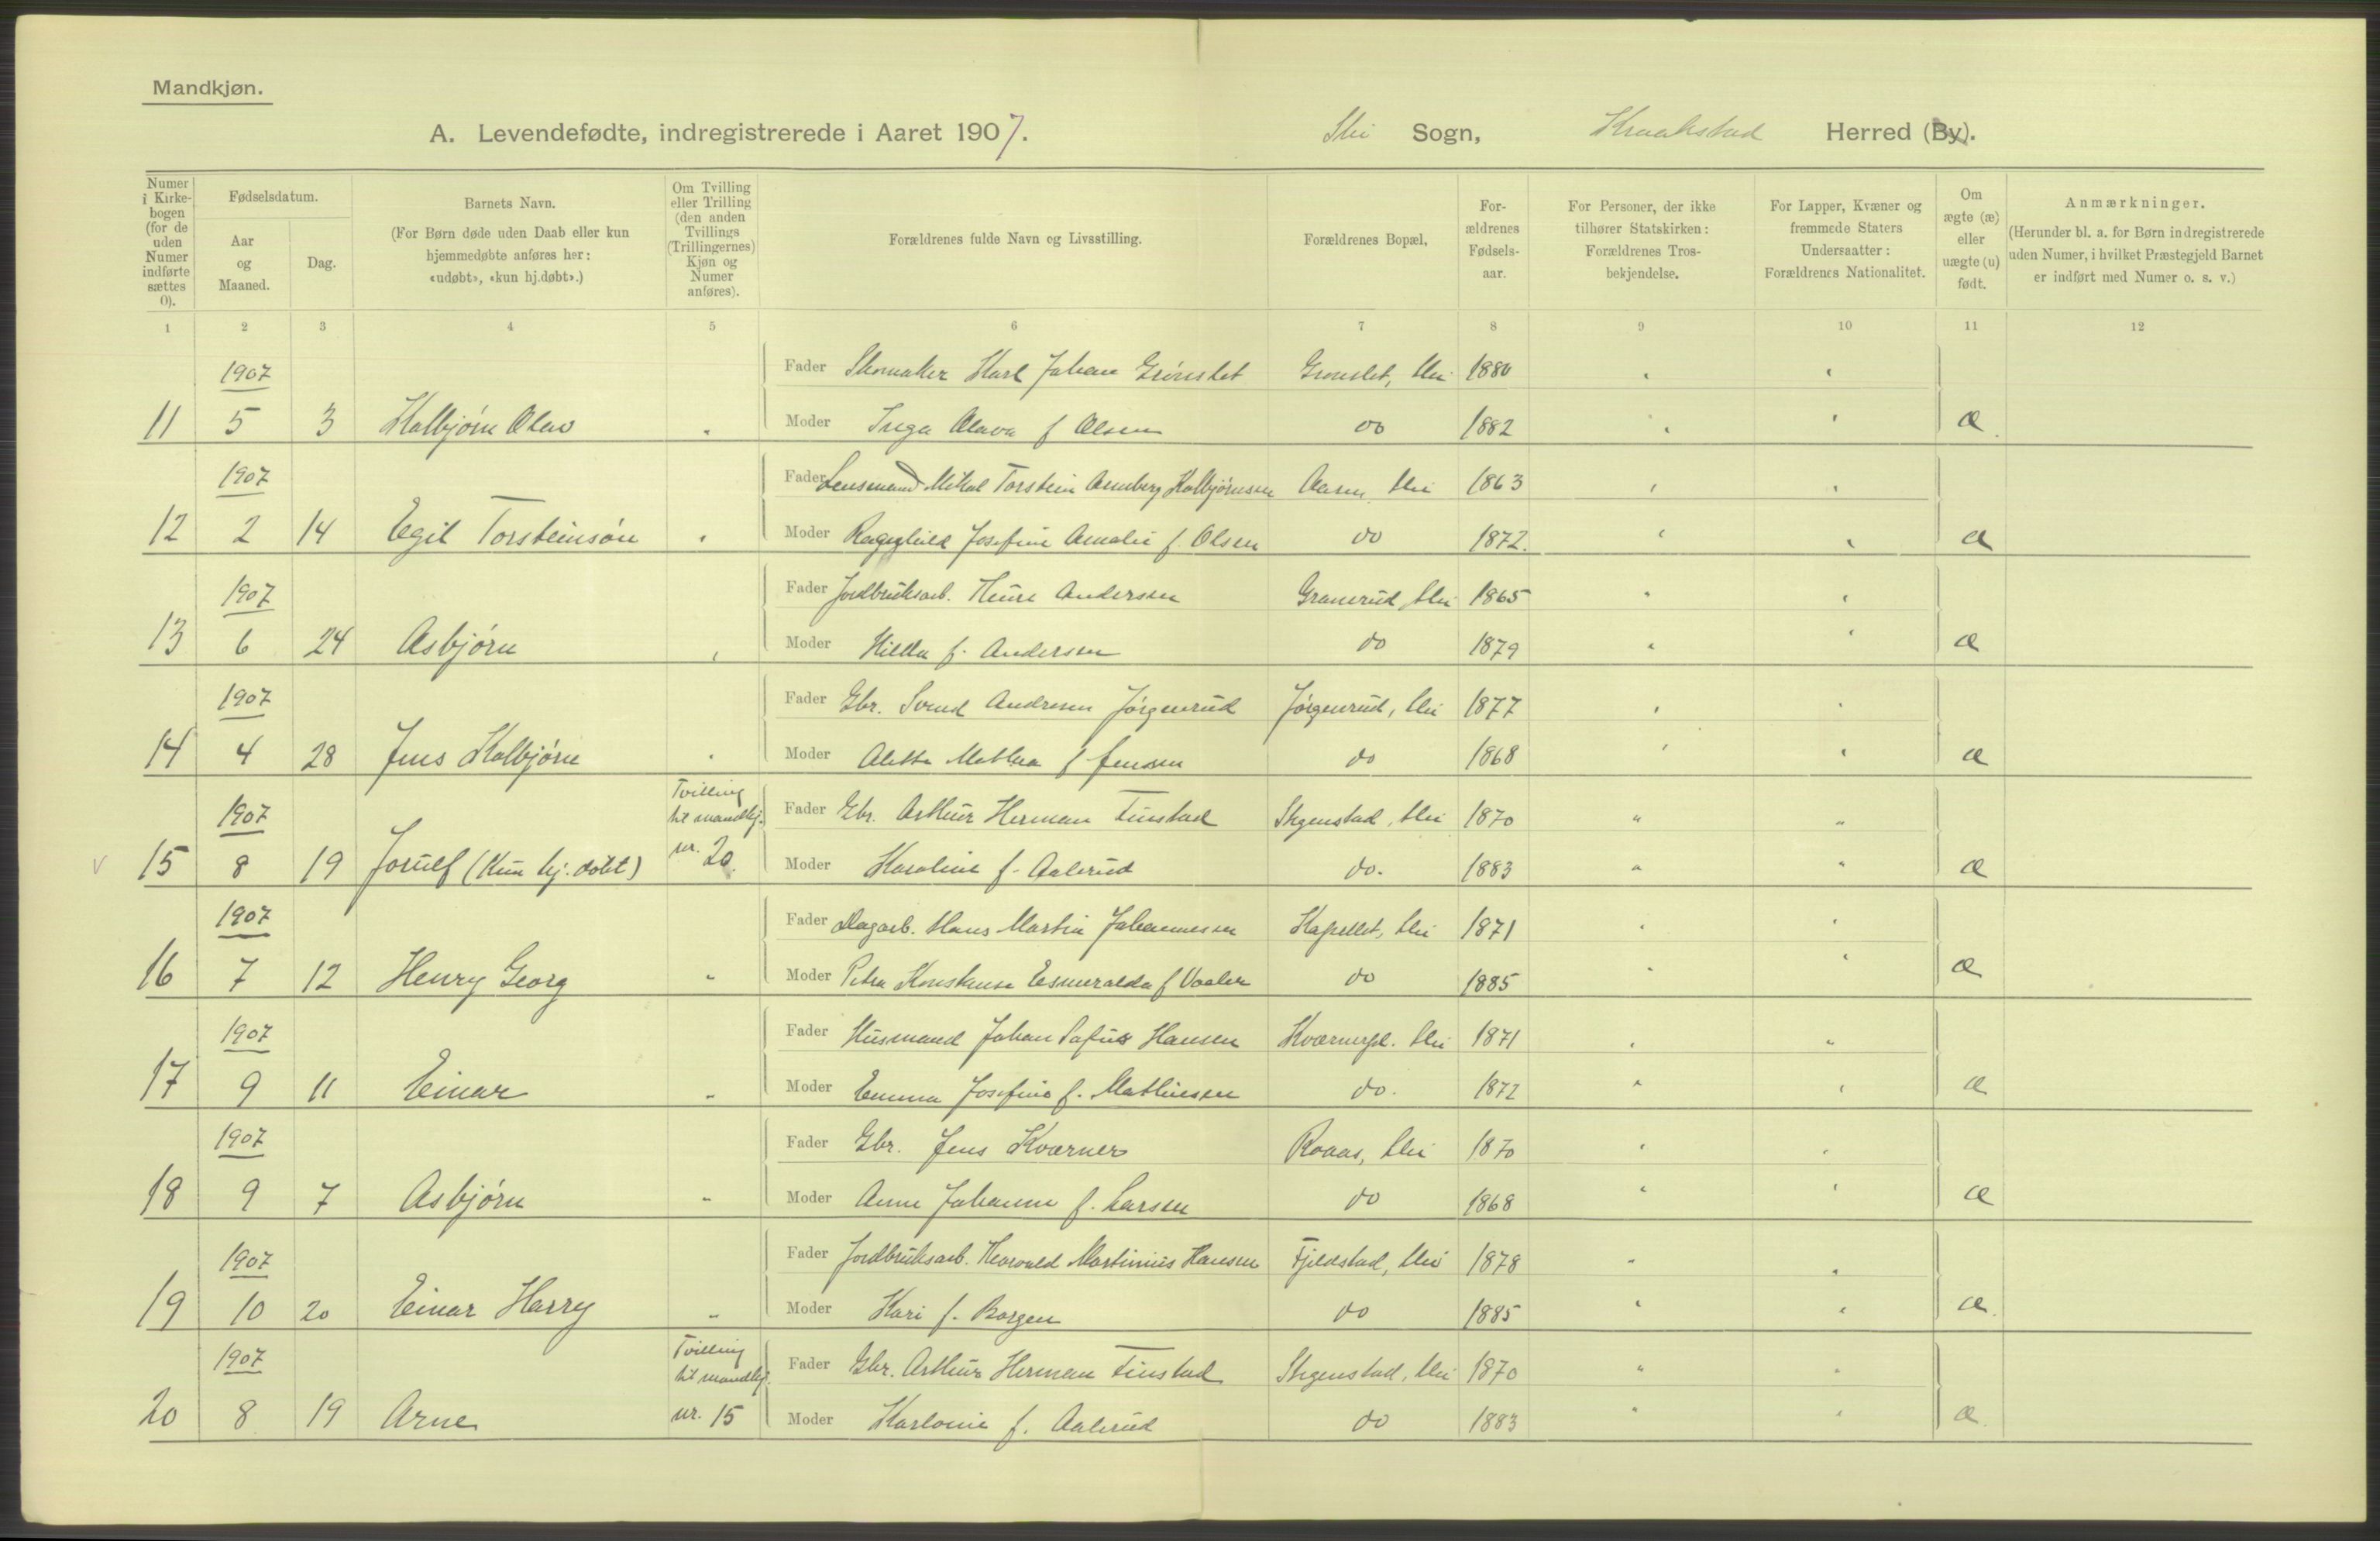 Mandkjøn.
A. Levendefødte, indregistrerede i Aaret 1907. Ski Sogn, Kraakstad Herred (By).
Numer i Kirke-bogen (for de uden Numer indførte sættes 0).
Fødselsdatum.
Aar og Maaned.
Dag.
Barnets Navn.
(For Børn døde uden Daab eller kun hjemmedøbte anføres her: «udøbt», «kun hj.døbt».)
Om Tvilling eller Trilling (den anden Tvillings (Trillingernes) Kjøn og Numer anføres).
Forældrenes fulde Navn og Livsstilling.
Forældrenes Bopæl,
For-ældrenes Fødsels-aar.
For Personer, der ikke tilhører Statskirken: Forældrenes Tros-bekjendelse.
For Lapper, Kvæner og fremmede Staters Undersaatter: Forældrenes Nationalitet.
Om ægte (æ) eller uægte (u) født.
Anmærkninger.
(Herunder bl. a. for Børn indregistrerede uden Numer, i hvilket Præstegjeld Barnet er indført med Numer o. s. v.)
1 2 3 4 5 6 7 8 9 10 11 12
1907 Fader Skomaker Karl Johan Grønslet Grønslet, Ski 1880
11 5 3 Kolbjørn Olav " Moder Inga Olava f Olsen do 1882 æ
1907 Fader Lensmand Mikal Torstein Arnberg Kolbjørnsen Aasen, Ski 1863
12 2 14 Egil Torsteinsøn " Moder Ragnhild Josefine Amalie f. Olsen do 1872. æ
1907 Fader Jordbruksarb. Henrik Andersen Granerud, Ski 1865
13 6 24 Asbjørn " Moder Hilda f. Andersen do 1879 æ
1907 Fader Gbr. Svend Andresen Jørgenrud Jørgenrud, Ski 1877
14 4 28 Jens Kolbjørn " Moder Alette Mathea f Jensen do 1868 æ
1907 Tvilling til mandkj. Fader Gbr. Arthur Herman Finstad Skgenstad, Ski 1870 " "
v 15 8 19 Jorulf (Kun hj. døbt) nr. 20. Moder Karoline f. Aalerud do. 1883 " " æ
1907 Fader Dagarb. Hans Martin Johannessen Kapellet, Ski 1871
16 7 12 Henry Georg " Moder Petra Konstanse Esmeralda f Vaaler do 1885 æ
1907 Fader Husmand Johan Sofus Hansen Kværnerpl. Ski 1871
17 9 11 Einar " Moder Emma Josefine f. Mathiesen do. 1872 æ
1907 Fader Gbr. Jens Kværner Roaas, Ski 1870
18 9 7 Asbjørn " Moder Anne Johanne f. Larsen do 1868 æ
1907 Fader Jordbruksarb. Harald Martinius Hansen Fjeldstad, Ski 1878
19 10 20 Einar Harry " Moder Kari f. Borgen do 1885 æ
1907 Tvilling til mandkj. Fader Gbr. Arthur Herman Finstad Skgenstad, Ski 1870
20 8 19 Arne nr. 15 Moder Karlonie f. Aalerud do 1883 æ